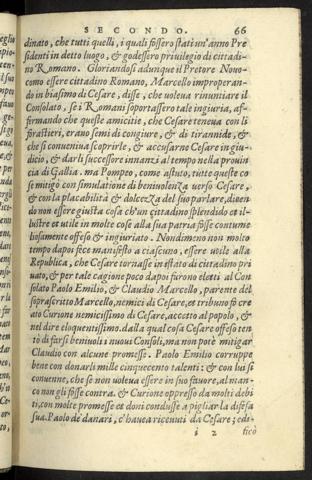 SECONDO. 66
dinato, che tutti quelli, i quali fossero stati un'anno Pre
sidenti in detto luogo, & godessero priuilegio di cittadi
no Romano. Gloriandosi adunque il Pretore Nouo-
como essere cittadino Romano, Marcello improperan-
do in biasimo di Cesare, disse, che uoleua rinuntiare il
Consolato, se i Romani soportassero tale ingiuria, af-
firmando che queste amicitie, che Cesare teneua con li
forastieri, erano semi di congiure, & di tirannide, &
che si conueniua scoprirle, & accusarne Cesare in giu-
dicio, & darli successore innanzi al tempo nella prouin
cia di Gallia. ma Pompeo, come astuto, tutte queste co
se mitigò con simulatione di beniuolenza uerso Cesare,
& con la placabilità & dolcezza del suo parlare, dicen
do non essere giusta cosa ch'un cittadino splendido et il-
lustre et utile in molte cose alla sua patria fosse contume
liosamente offeso & ingiuriato. Nondimeno non molto
tempo dapoi fece manifesto a ciascuno, essere utile alla
Republica, che Cesare tornasse in istato di cittadino pri
uato, & per tale cagione poco dapoi furono eletti al Con
solato Paolo Emilio, & Claudio Marcello, parente del
soprascritto Marcello, nemici di Cesare, et tribuno fu cre
ato Curione nemicissimo di Cesare, accetto al popolo, &
nel dire eloquentissimo. dalla qual cosa Cesare offeso ten
tò di farsi beniuoli i nuoui Consoli, ma non potè mitigar
Claudio con alcune promesse. Paolo Emilio corruppe
bene con donarli mille cinquecento talenti: & con lui si
conuenne, che se non uoleua essere in suo fauore, al man-
co non gli fosse contra. & Curione oppresso da molti debi
ti, con molte promesse et doni condusse a pigliar la difesa
sua. Paolo de' danari, c'haueа riceuuti da Cesare, edi-
i 2 ficò